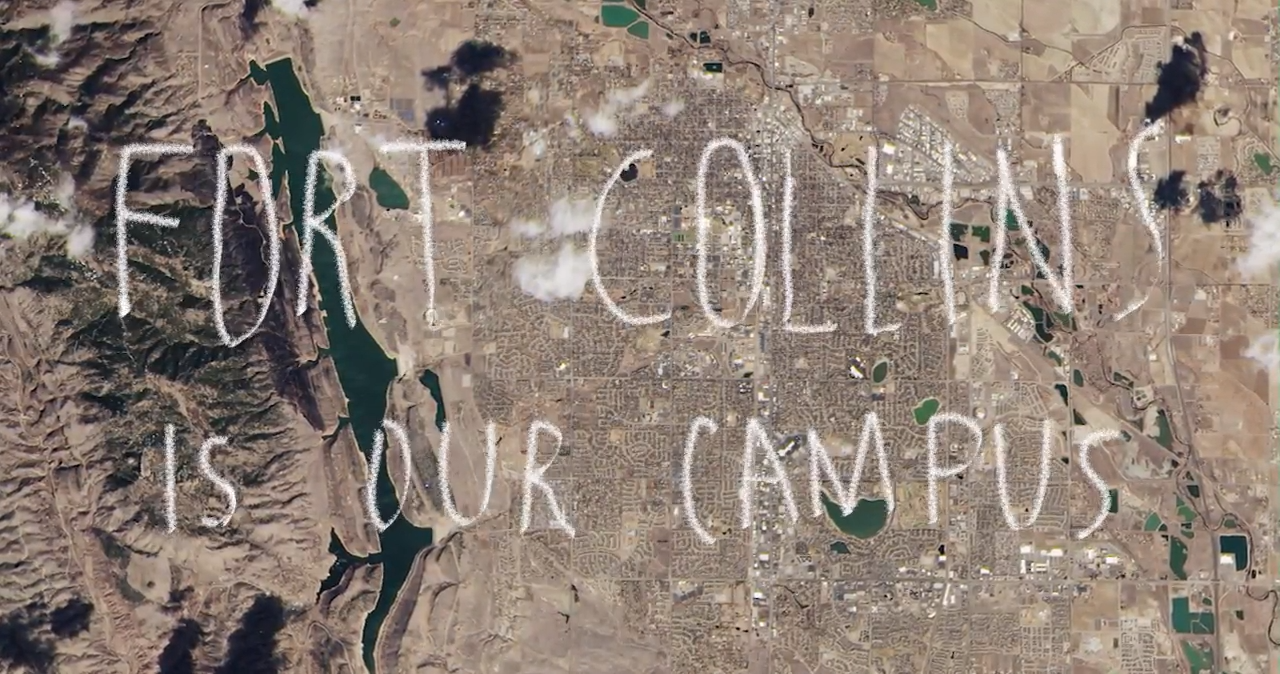 FORT COLLINS
IS OUR CAMPUS